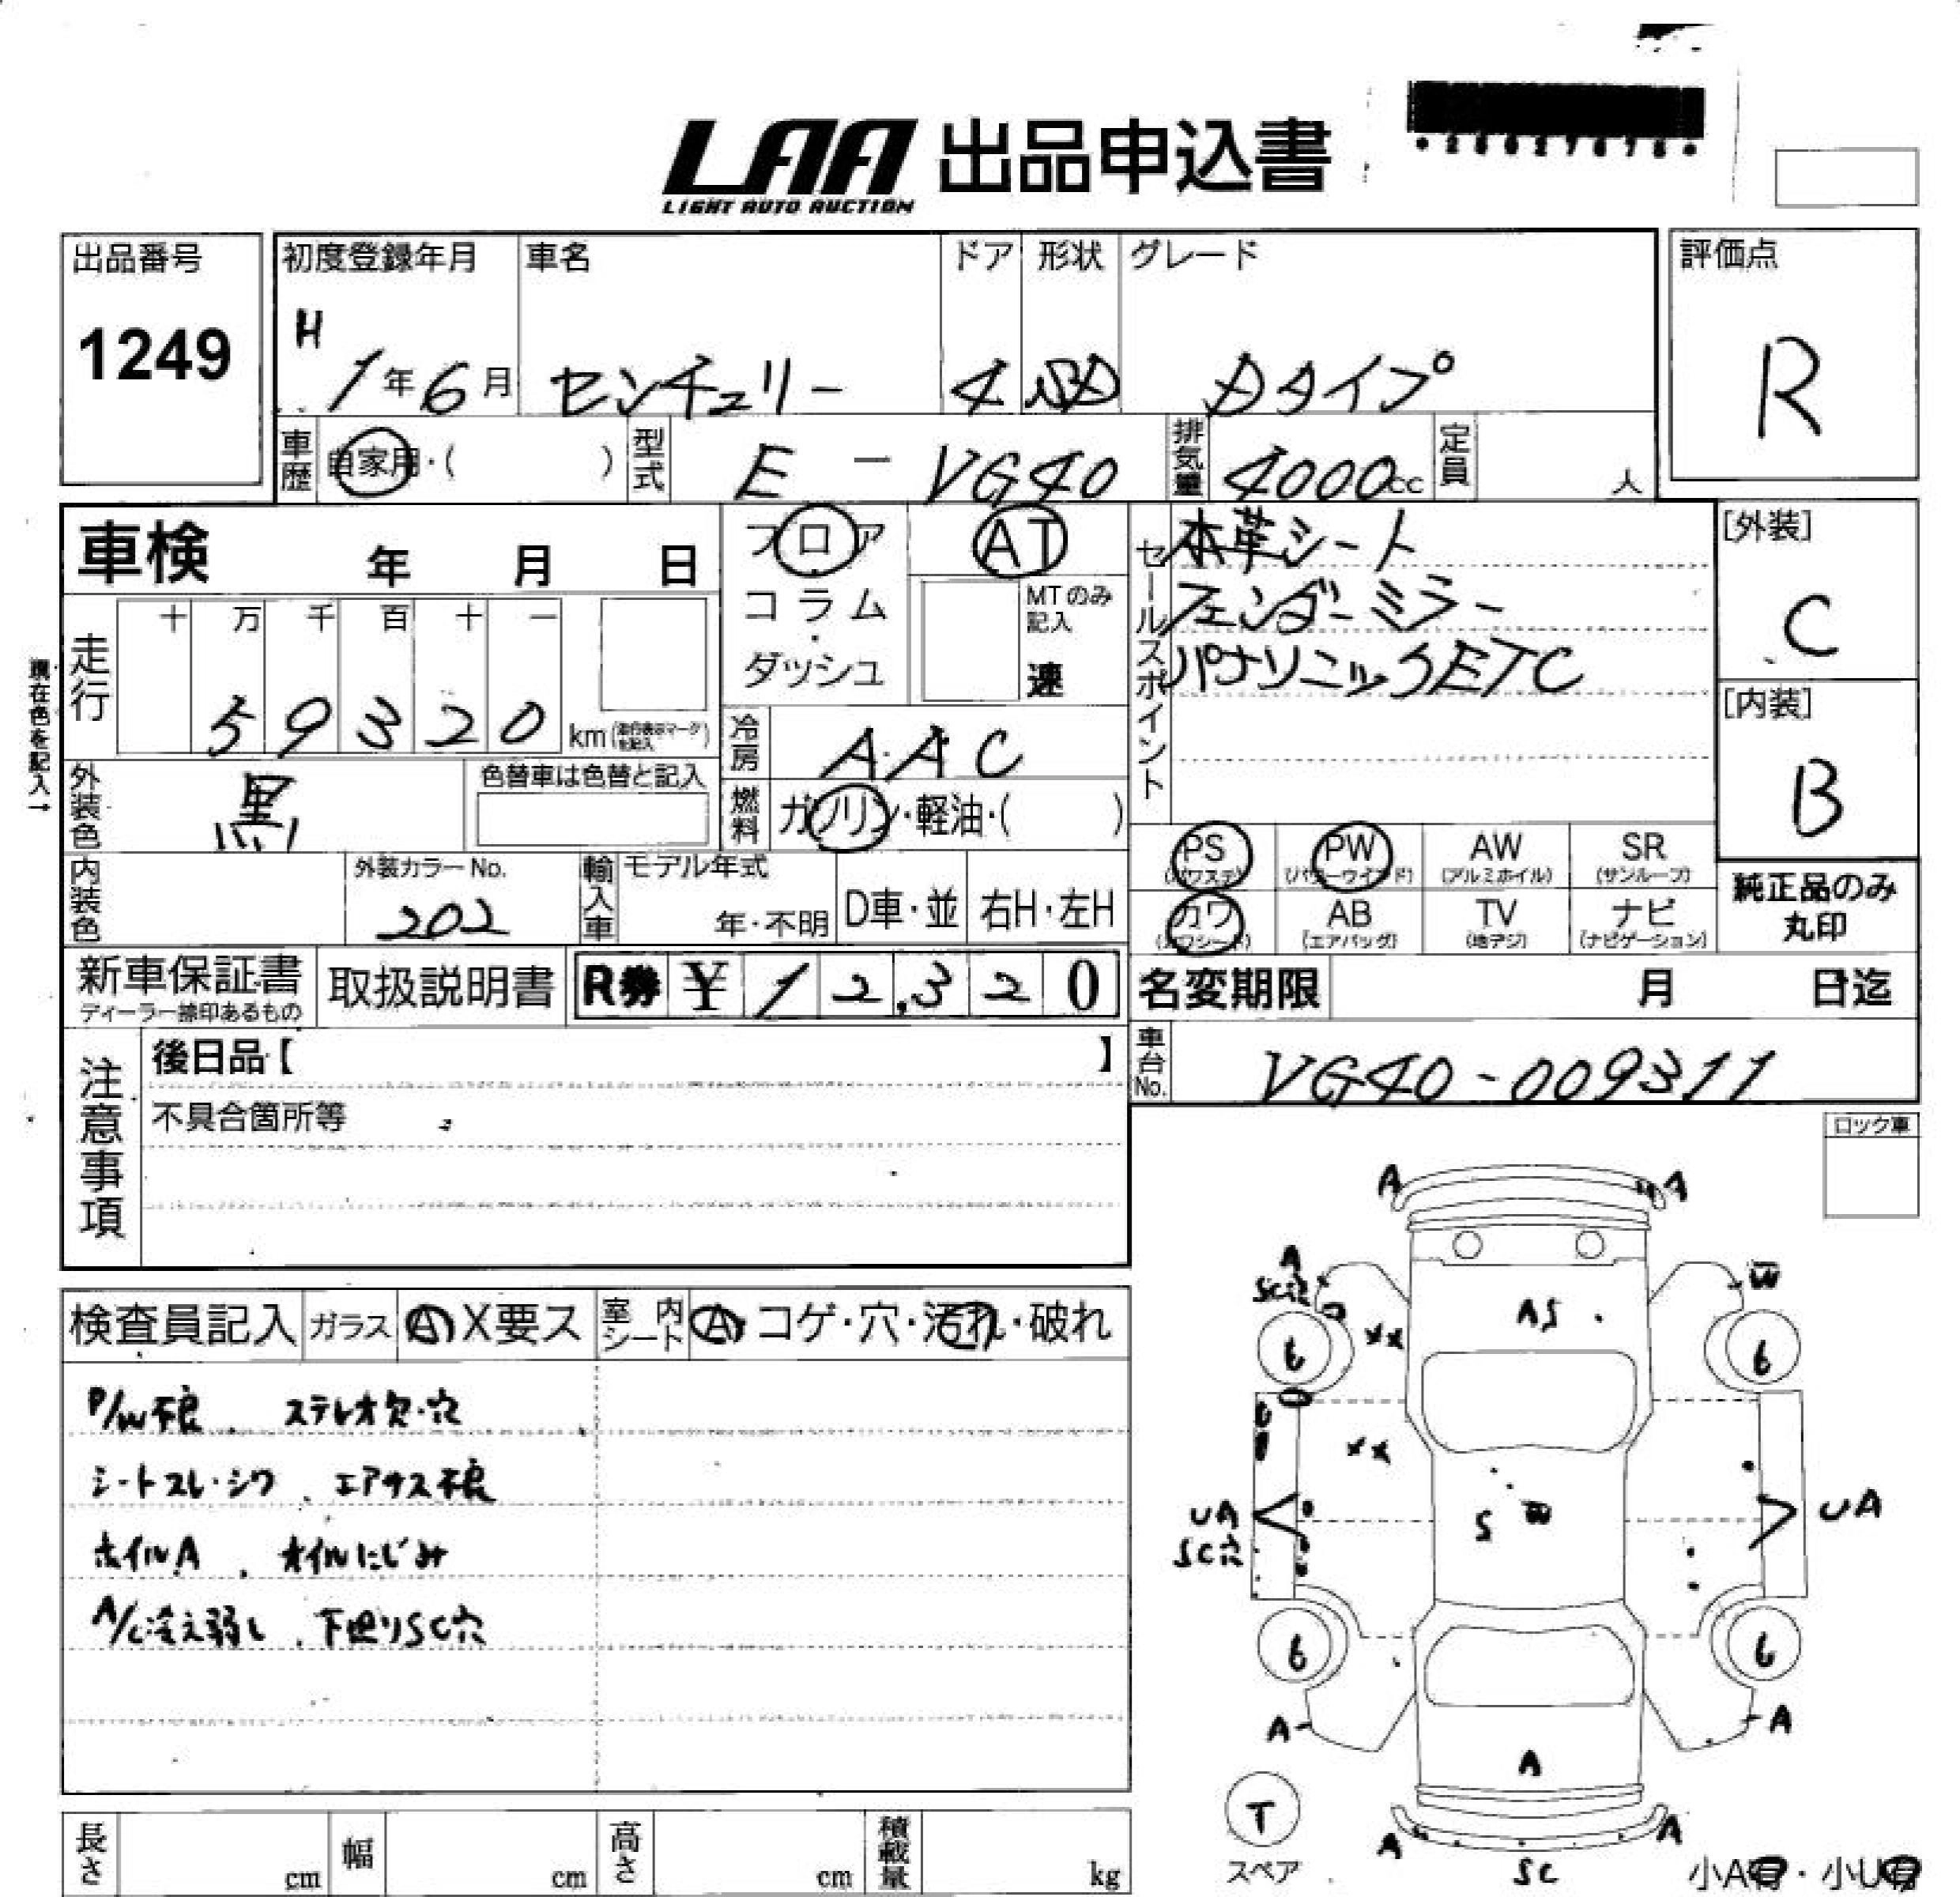 LAA 出品申込書
LIGHT AUTO AUCTION
出品番号
1249
初度登録年月
H 1年6月
車名
センチュリー
ドア
4
形状
SD
グレード
Dタイプ
評価点
R
車歴
自家用・( )
型式
E - VG40
排気量
4000cc
定員
人
車検 年 月 日
フロア
コラム
・
ダッシュ
AT
MTのみ
記入
速
セールスポイント
本革シート
フェンダーミラー
パナソニックETC
[外装]
C
[内装]
B
現在色を記入→
走行
十 万 千 百 十 一
5 9 3 2 0 km
冷房
A.A C
燃料
ガソリン・軽油・( )
外装色
黒
色替車は色替と記入
内装色
外装カラーNo.
202
輸入車
モデル年式
年・不明
D車・並
右H・左H
PS
(パワステ)
PW
(パワーウインド)
AW
(アルミホイル)
SR
(サンルーフ)
カワ
(カワシート)
AB
(エアバッグ)
TV
(地デジ)
ナビ
(ナビゲーション)
純正品のみ
丸印
新車保証書
ディーラー捺印あるもの
取扱説明書
R券 ¥ 1 2,3 2 0
名変期限 月 日迄
車台No.
VG40-009311
注意事項
後日品【 】
不具合箇所等
ロック車
検査員記入
ガラス
A X要ス
室内
シート
A・コゲ・穴・汚れ・破れ
P/W不良、 ステレオ欠・穴
シートスレ・シワ、エアサス不良
ホイルA、 オイルにじみ
A/C冷え弱し、下廻りSC穴
A A
A
W
AS
XX
6 6
XX
S W
UA
SC穴
UA
6 6
A A
A
T
スペア
A A
SC
小A有・小U有
長さ cm
幅 cm
高さ cm
積載量 kg